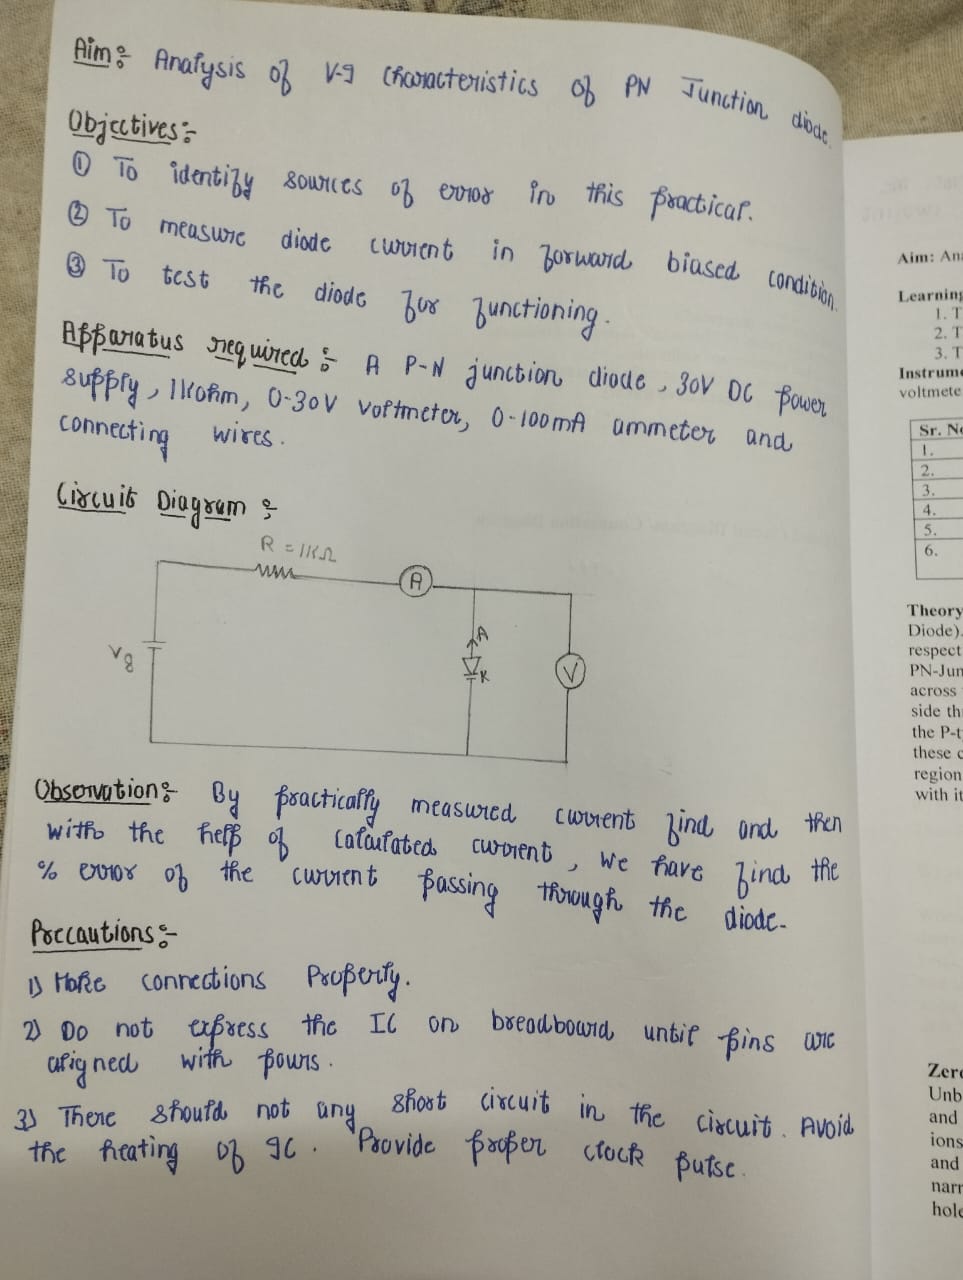 Aim:- Analysis of V-I Characteristics of PN Junction diode.
Objectives:-
① To identify sources of error in this practical.
② To measure diode current in forward biased condition.
③ To test the diode for functioning.
Apparatus required :- A P-N junction diode, 30V DC power
supply, 1Kohm, 0-30V voltmeter, 0-100mA ammeter and
connecting wires.
Circuit Diagram :-
R = 1KΩ
A
A
K
V
Observation:- By practically measured current find and then
with the help of calculated current, we have find the
% error of the current passing through the diode.
Precautions:-
1) Make connections Properly.
2) Do not express the IC on breadboard until pins are
aligned with pours.
3) There should not any short circuit in the circuit. Avoid
the heating of IC. Provide proper clock pulse.
Aim: Ana
Learning
1. T
2. T
3. T
Instrume
voltmete
Sr. No
1.
2.
3.
4.
5.
6.
Theory
Diode).
respect
PN-Jun
across
side th
the P-t
these c
region
with it
Zero
Unb
and
ions
and
narr
hole